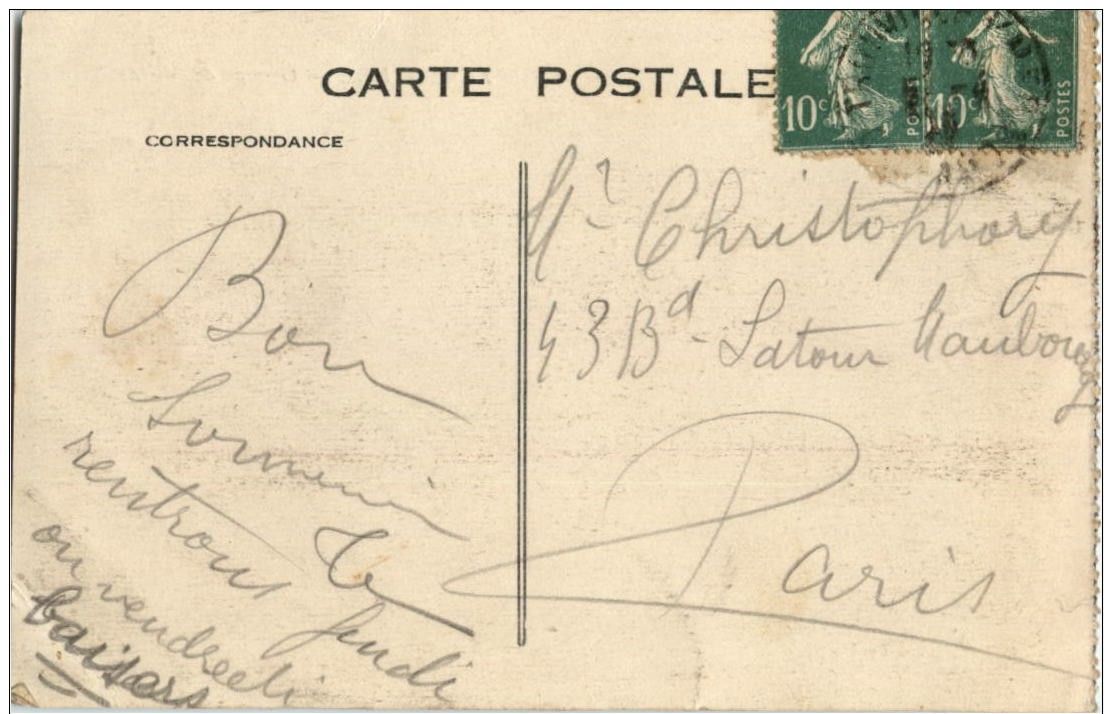 CARTE POSTALE
CORRESPONDANCE
10c
10c POSTES
Bon
Souvenir
rentrons Jeudi
ou vendredi
baisers
Mr Christophory
43 Bd - Latour Maubourg
Paris